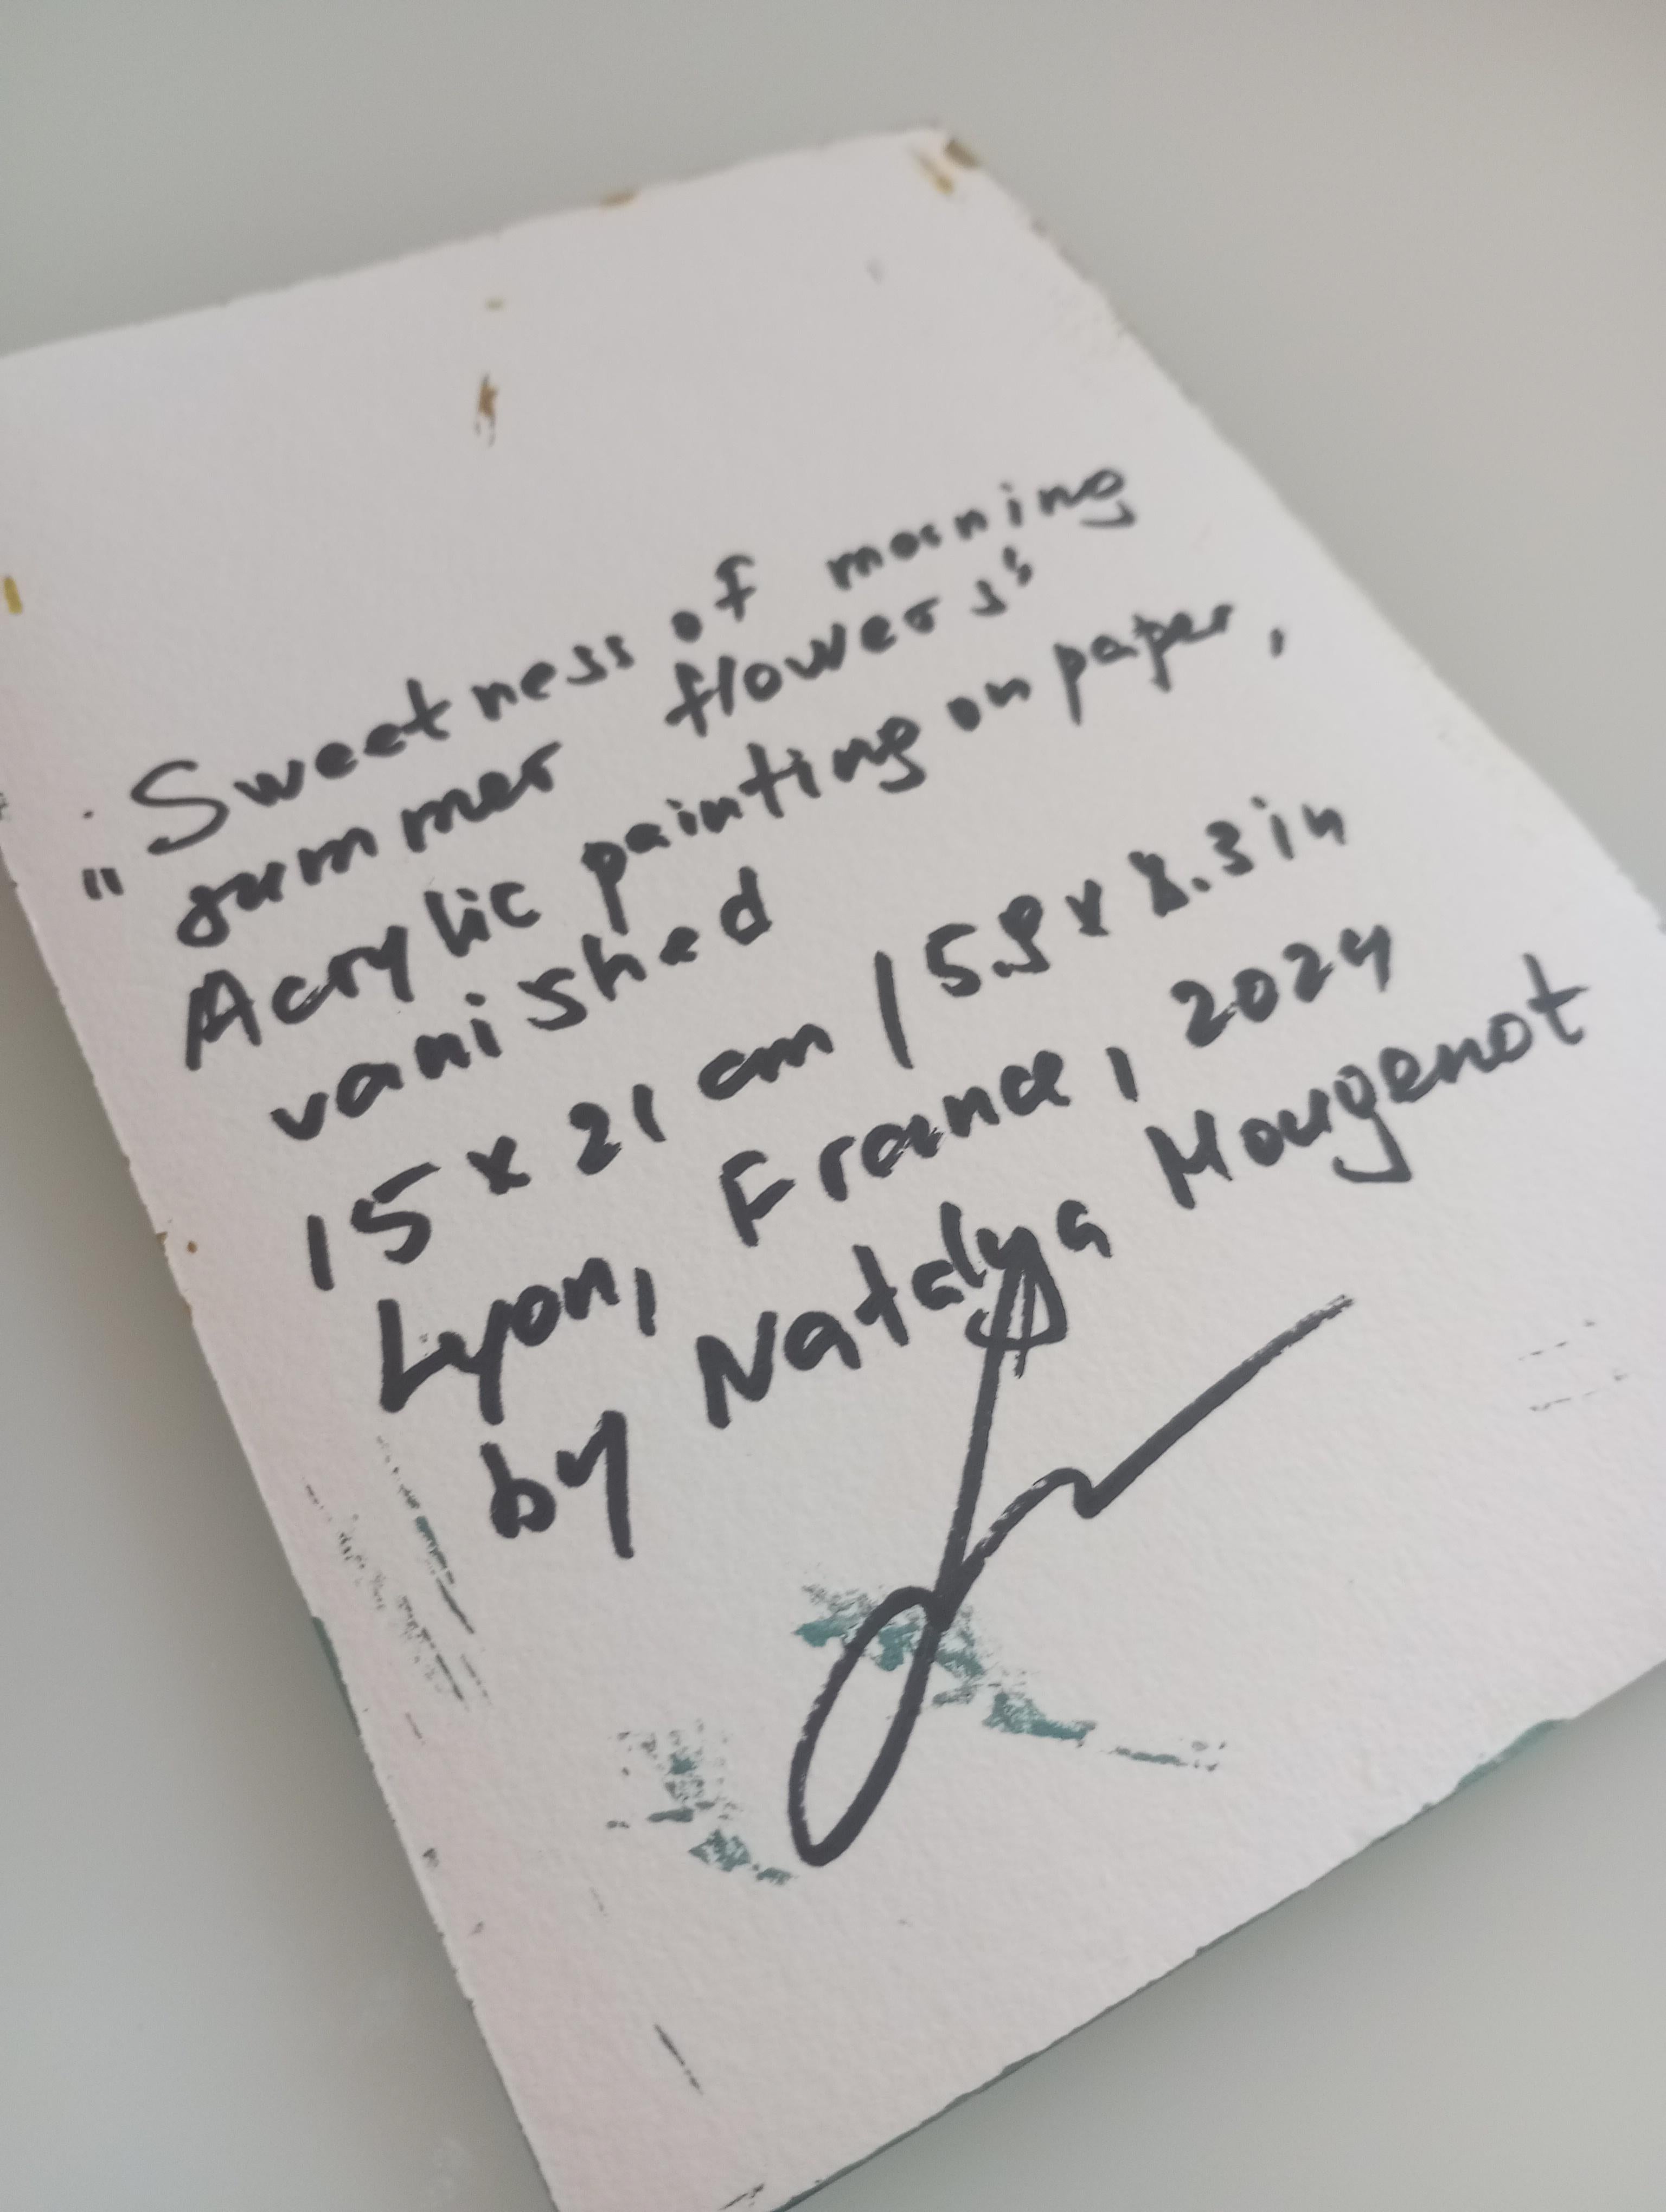 "Sweetness of morning
summer flowers"
Acrylic painting on paper,
vanished
15 x 21 cm | 5.9 x 8.3 in
Lyon, France, 2024
by Natalya Mougenot